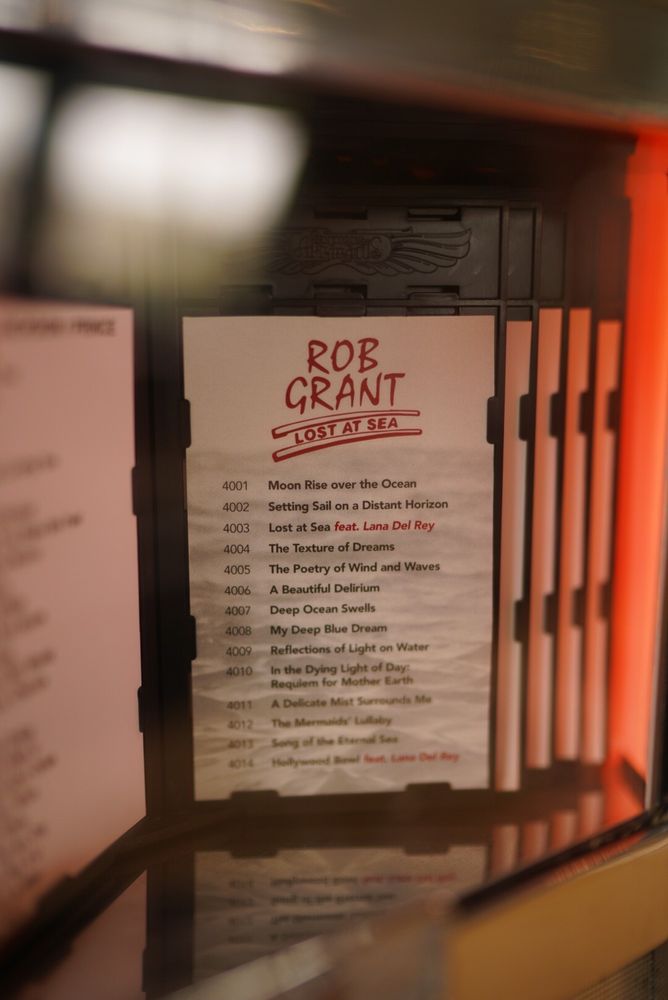 ROB
GRANT
LOST AT SEA
4001 Moon Rise over the Ocean
4002 Setting Sail on a Distant Horizon
4003 Lost at Sea feat. Lana Del Rey
4004 The Texture of Dreams
4005 The Poetry of Wind and Waves
4006 A Beautiful Delirium
4007 Deep Ocean Swells
4008 My Deep Blue Dream
4009 Reflections of Light on Water
4010 In the Dying Light of Day:
Requiem for Mother Earth
4011 A Delicate Mist Surrounds Me
4012 The Mermaids' Lullaby
4013 Song of the Eternal Sea
4014 Hollywood Bowl feat. Lana Del Rey